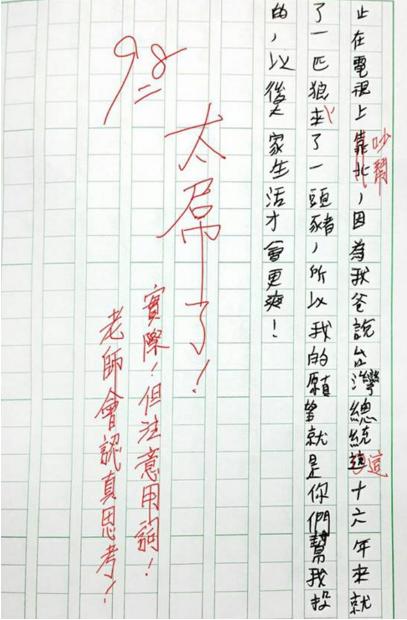 吵鬧
止在電視上靠北，因為我爸說台灣總統這十六年來就
這
了一匹狼了一頭豬，所以我的願望就是你們幫我投
的，以後大家生活才會更爽！
98
太屌了！
實際！但注意用詞！
老師會認真思考！